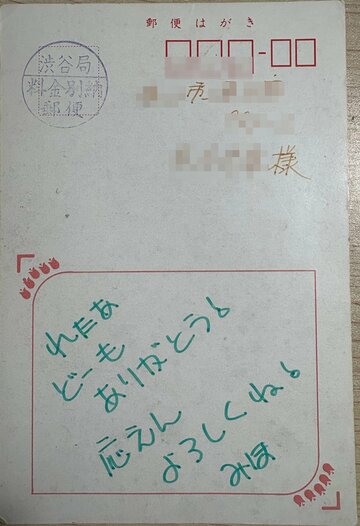 郵便はがき
渋谷局
料金別納
郵便
市
様
れたあ
どーも
ありがとう!
応えん
よろしくね!
みほ